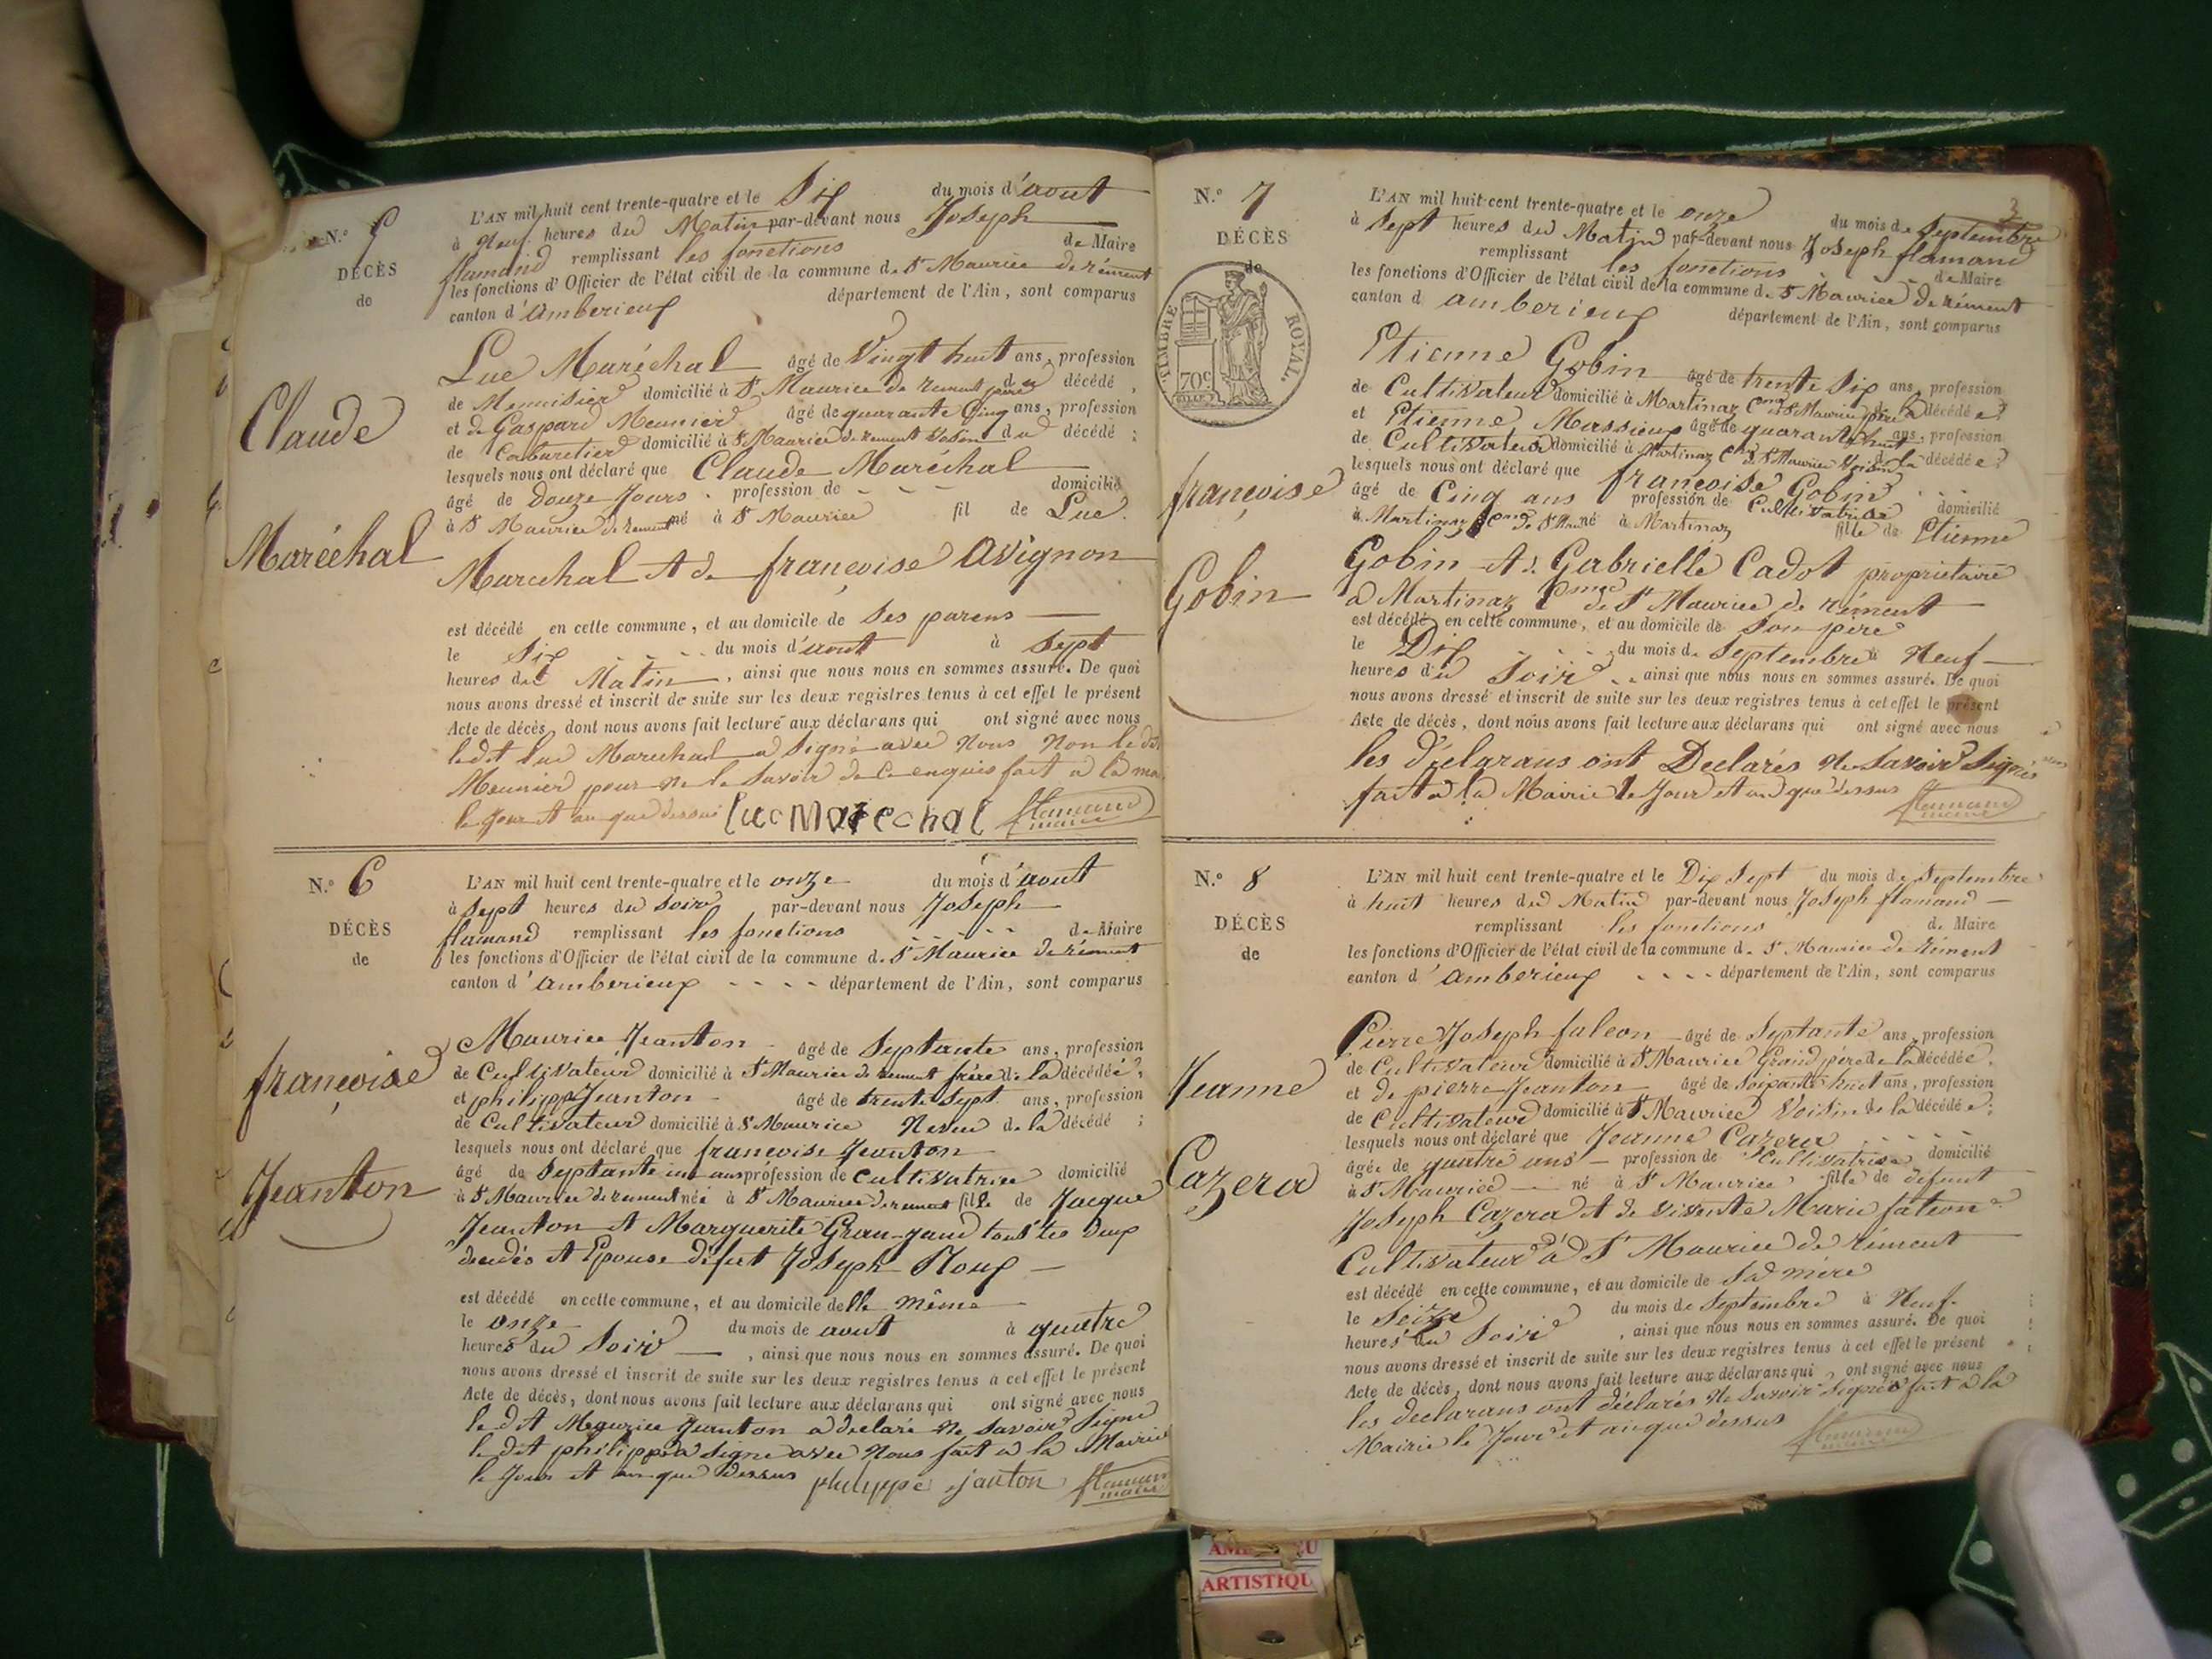 N.º 5
DÉCÈS
de
Claude
Maréchal
L'AN mil huit cent trente-quatre et le Six du mois d'aout
à Neuf heures du Matin par-devant nous Joseph
flamand remplissant les fonctions de Maire
les fonctions d'Officier de l'état civil de la commune d. St Maurice de rément
canton d'amberieux département de l'Ain, sont comparus
Luc Maréchal âgé de Vingt huit ans, profession
de Menuisier domicilié à St Maurice de rement père du décédé,
et de Gaspard Meunier âgé de quarante Cinq ans, profession
de Cabaretier domicilié à St Maurice de rement Voisin du décédé;
lesquels nous ont déclaré que Claude Maréchal
âgé de Douze Jours profession de domicilié
à St Maurice de rement né à St Maurice fil de Luc
Marechal et de françoise Avignon
est décédé en cette commune, et au domicile de Ses parens
le Six du mois d'aout à Sept
heures du Matin, ainsi que nous nous en sommes assuré. De quoi
nous avons dressé et inscrit de suite sur les deux registres tenus à cet effet le présent
Acte de décès, dont nous avons fait lecture aux déclarans qui ont signé avec nous
ledit luc Marechal a Signé avec Nous Non le dit
Meunier pour ne le Savoir de ce enquis fait a la
le Jour et an que dessus Luc Marechal flamand maire
N.º 6
DÉCÈS
de
françoise
Jeanton
L'AN mil huit cent trente-quatre et le onze du mois d'aout
à Sept heures du Soir par-devant nous Joseph
flamand remplissant les fonctions de Maire
les fonctions d'Officier de l'état civil de la commune d. St Maurice de rément
canton d'amberieux département de l'Ain, sont comparus
Maurice Jeanton âgé de Septante ans, profession
de Cultivateur domicilié à St Maurice de rement frère de la décédée,
et philippe Jeanton âgé de trente Sept ans, profession
de Cultivateur domicilié à St Maurice Neveu de la décédé;
lesquels nous ont déclaré que francoise Jeanton
âgé de Septante un ans profession de Cultivatrice domicilié
à St Maurice de rement née à St Maurice de rement fille de Jacque
Jeanton et Marguerite Gran-jand tous les Deux
décédés et Epouse défut Joseph Roux
est décédé en cette commune, et au domicile delle même
le onze du mois de aout à quatre
heures du Soir, ainsi que nous nous en sommes assuré. De quoi
nous avons dressé et inscrit de suite sur les deux registres tenus à cet effet le présent
Acte de décès, dont nous avons fait lecture aux déclarans qui ont signé avec nous
le dit Maurice Jeanton a déclaré ne Savoir Signe
le dit philippe a Signe avec Nous fait a la Mairie
le Jour et an que Dessus philippe janton flamand maire
3
N.º 7
DÉCÈS
de
TIMBRE ROYAL.
70c
françoise
Gobin
L'AN mil huit cent trente-quatre et le onze du mois de Septembre
à Sept heures du Matin par-devant nous Joseph flamand
remplissant les fonctions de Maire
les fonctions d'Officier de l'état civil de la commune d. St Maurice de rément
canton d amberieux département de l'Ain, sont comparus
Etienne Gobin âgé de trente Six ans, profession
de Cultivateur domicilié à Martinaz Cne de St Maurice père de la décédée
et Etienne Massieux âgé de quarante huit ans, profession
de Cultivateur domicilié à Martinaz Cne de St Maurice Voisin de la décédée
lesquels nous ont déclaré que francoise Gobin
âgé de Cinq ans profession de Cultivatrice domicilié
à Martinaz Cne de St Mau né à Martinaz fille de Etienne
Gobin et d. Gabrielle Cadot proprietaire
a Martinaz Cmne de St Maurice de rément
est décédé en cette commune, et au domicile de Son père
le Dix du mois de Septembre à Neuf
heures du Soir, ainsi que nous nous en sommes assuré. De quoi
nous avons dressé et inscrit de suite sur les deux registres tenus à cet effet le présent
Acte de décès, dont nous avons fait lecture aux déclarans qui ont signé avec nous
les Déclarans ont Declarés Ne Savoir Signés
fait a la Mairie le Jour et an que dessus flamand maire
N.º 8
DÉCÈS
de
Jeanne
Cazera
L'AN mil huit cent trente-quatre et le Dix Sept du mois de Septembre
à huit heures du Matin par-devant nous Joseph flamand
remplissant les fonctions de Maire
les fonctions d'Officier de l'état civil de la commune d. St Maurice de rément
canton d'amberieux département de l'Ain, sont comparus
Pierre Joseph falcon âgé de Septante ans, profession
de Cultivateur domicilié à St Maurice Grand père de la décédée,
et de pierre Jeanton âgé de Soixante huit ans, profession
de Cultivateur domicilié à St Maurice Voisin de la décédée;
lesquels nous ont déclaré que Jeanne Cazera
âgée de quatre ans profession de Cultivatrice domicilié
à St Maurice né à St Maurice fille de défunt
Joseph Cazera et de vivente Marie falcon
Cultivateur à St Maurice de rément
est décédé en cette commune, et au domicile de Sa mère
le Seize du mois de Septembre à Neuf
heures du Soir, ainsi que nous nous en sommes assuré. De quoi
nous avons dressé et inscrit de suite sur les deux registres tenus à cet effet le présent
Acte de décès, dont nous avons fait lecture aux déclarans qui ont signé avec nous
les declarans ont déclarés Ne Savoir Signés fait a la
Mairie le Jour et an que dessus flamand
ARTISTIQU